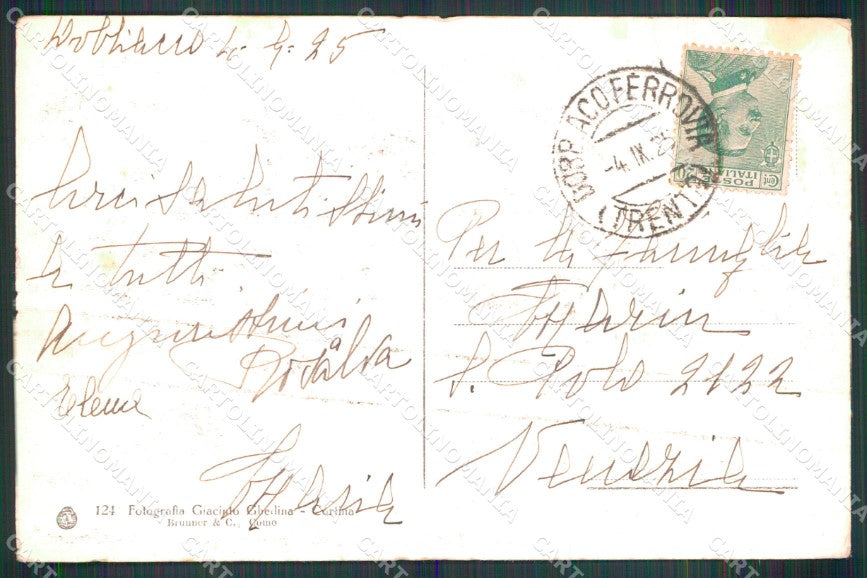 Dobbiacco 4. 9. 25
saluti
a tutti
Rosalba
Maria
124 Fotografia Giacinto Ghedina - Cortina
Brunner & C., Como
DOBBIACO FERROVIA
-4. IX. 25
(TRENTO)
POSTE
ITALIANE
Per la famiglia
Marin
S. Polo 2122
Venezia
CARTOLINOMANIA